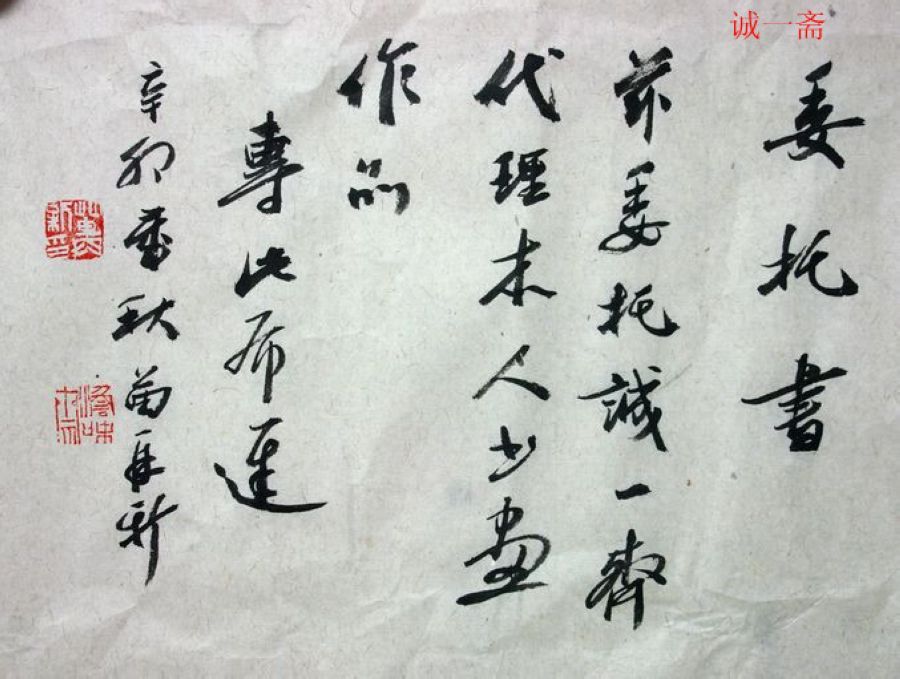 诚一斋
委托書
茲委托誠一齋
代理本人书畫
作品
專此布達
辛卯秋苗再新